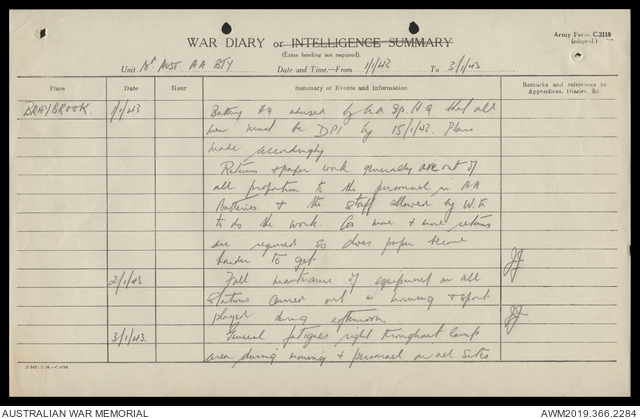 Army Form C.2118
(adapted.)
WAR DIARY or INTELLIGENCE SUMMARY
(Erase heading not required).
Unit AUST AA BTY Date and Time—From 1/1/43 To 3/1/43
Place Date Hour Summary of Events and Information Remarks and references to
Appendices, Diaries &c
BRAYBROOK. 1/1/43 Battery HQ advised by Gp. HQ that all
must be DP1 by 15/1/43. Plans
made accordingly
Returns & paper work generally are out of
all proportion to the personnel in AA
Batteries & the staff allowed by W.E.
to do the work. As more & more returns
are required so does paper become
harder to get. JJ
2/1/43 Full maintenance of equipment on all
stations carried out in morning & sport
played during afternoon JJ
3/1/43. General fatigues right throughout camp
area during morning & personnel on all sites
AUSTRALIAN WAR MEMORIAL AWM2019.366.2284